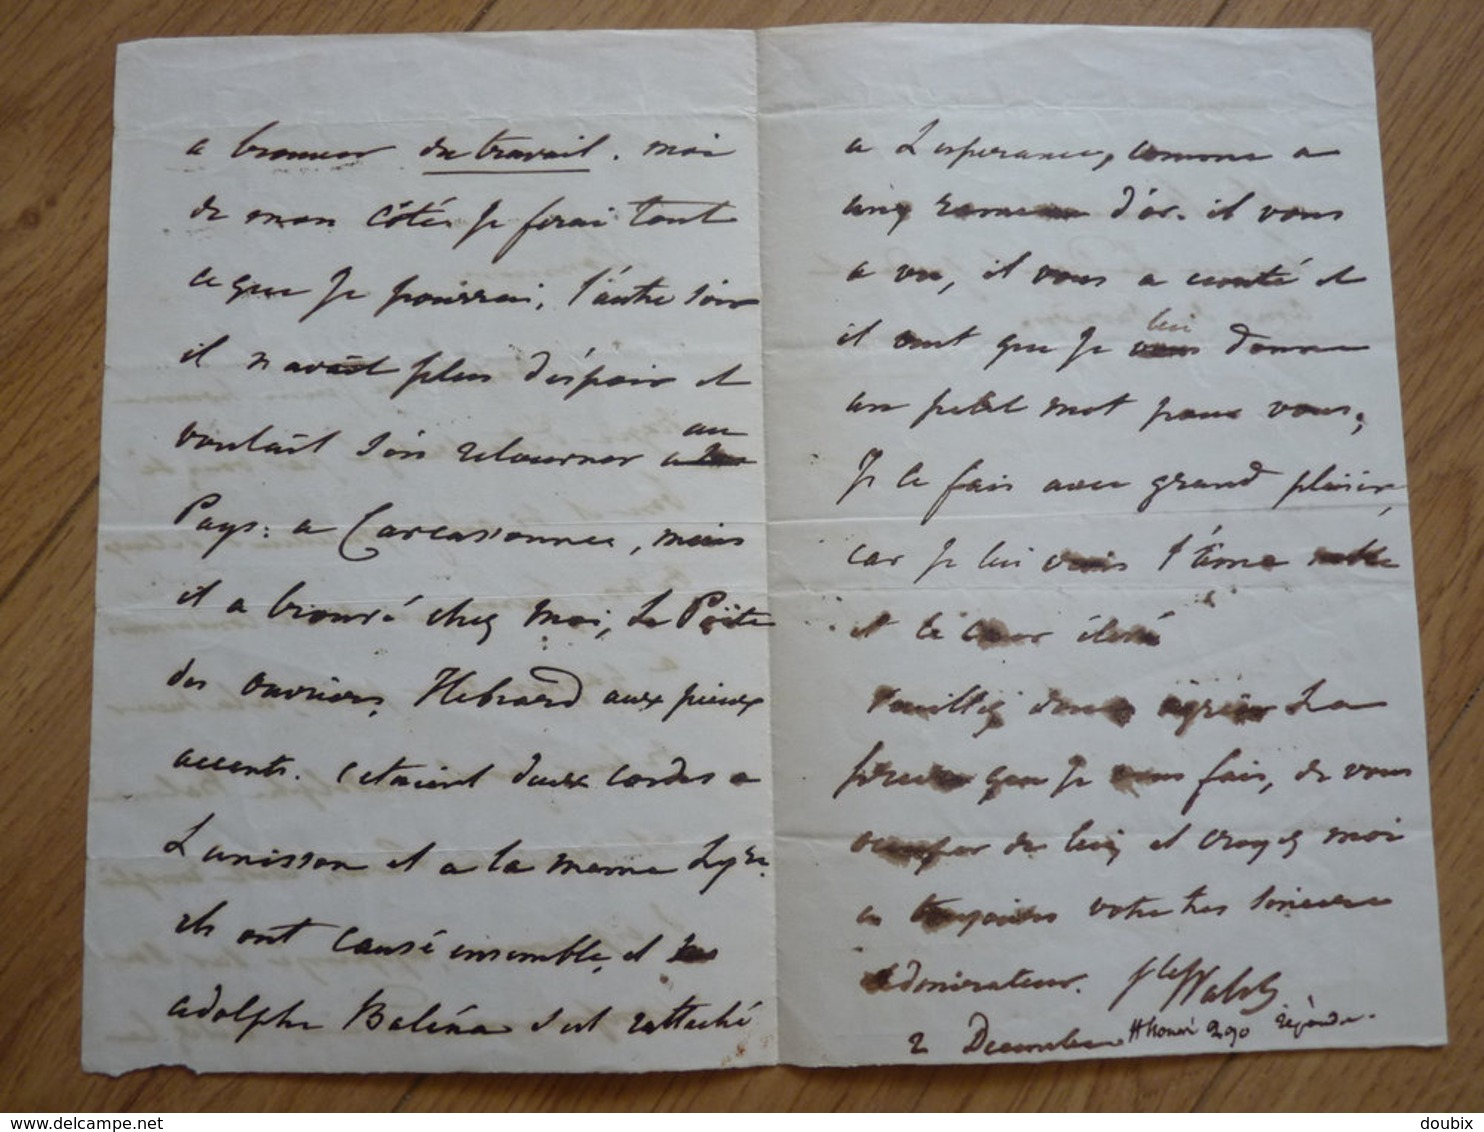 a trouver du travail. moi
de mon côté je ferai tout
ce que je pourrai, l'autre soir
il n'avait plus d'éspoir et
voulait s'en retourner au
Pays: a Carcassonne, mais
il a trouvé chez moi, le Poëte
des ouvriers, Hebrard aux pieux
accents. c'etaient deux cordes a
L'unisson et a la meme Lyre.
ils ont causé ensemble, et
adolphe Baléna s'est rattaché
a L'esperance, comme a
cinq rameau d'or. il vous
a vu, il vous a conté et
il veut que je lui donne
un petit mot pour vous,
Je le fais avec grand plaisir,
car je lui vois l'âme noble
et le cœur élevé
Veuillez donc agréer La
prière que je vous fais, de vous
occuper de lui, et croyez moi
a toujours votre tres sincere
admirateur.
2 Decembre St honoré 290 réponde.
doubix